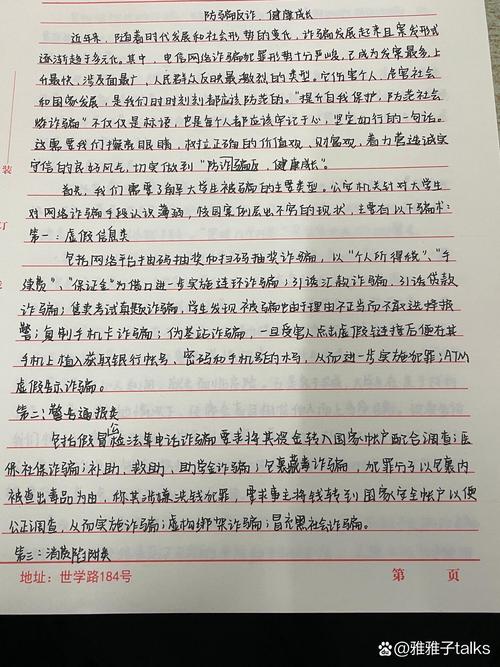 防骗反诈,健康成长
近年来,随着时代发展和社会形势的变化,诈骗发展起来且案发形式
逐渐趋于多元化。其中,电信网络诈骗犯罪形势十分严峻,已成为发案最多,上
升最快,涉及面最广,人民群众反映最激烈的类型。它伤害个人,危害社会
和国家发展,是我们时时刻刻都应该防范的。"提升自我保护,防范社会
诈骗"不仅仅是标语,也是每个人都应该牢记于心,坚定如行的一句话。
这需要我们擦亮眼睛,树立正确的价值观,财富观,着力营造诚实
守信的良好风气,切实做到"防诈骗反,健康成长"。
首先,我们需要了解大学生被骗的主要类型。公安机关针对大学生
对网络诈骗手段认识薄弱,该国案例层出不穷的现状,主要有以下骗术:
第一:虚假信息类
包括网络平台扫码抽奖和扫码抽奖诈骗,以"个人所得税"、"手
续费"、"保证金"为借口进一步实施连环诈骗;引诱汇款诈骗,引诱贷款
诈骗;售卖考试真题诈骗,学生发现被骗也由于理由不正当而不敢选择报
警;复制手机卡诈骗;伪基站诈骗,一旦受害人点击虚假链接后便在其
手机上植入获取银行帐号、密码和手机号的木马,从而进一步实施犯罪;ATM
虚假告示诈骗。
第二:警告通报类
包括假冒检法军电话诈骗要求将其资金转入国家帐户配合调查;医
保社保诈骗;补助、救助、助学金诈骗;包裹藏毒诈骗,犯罪分子以包裹内
被查出毒品为由,称其涉嫌洗钱犯罪,要求事主将钱转到国家安全帐户以便
公正调查,从而实施诈骗;虚构绑架诈骗;冒充黑社会诈骗。
第三:消费陷阱类
地址:世学路184号
第 页
装
订
雅雅子talks